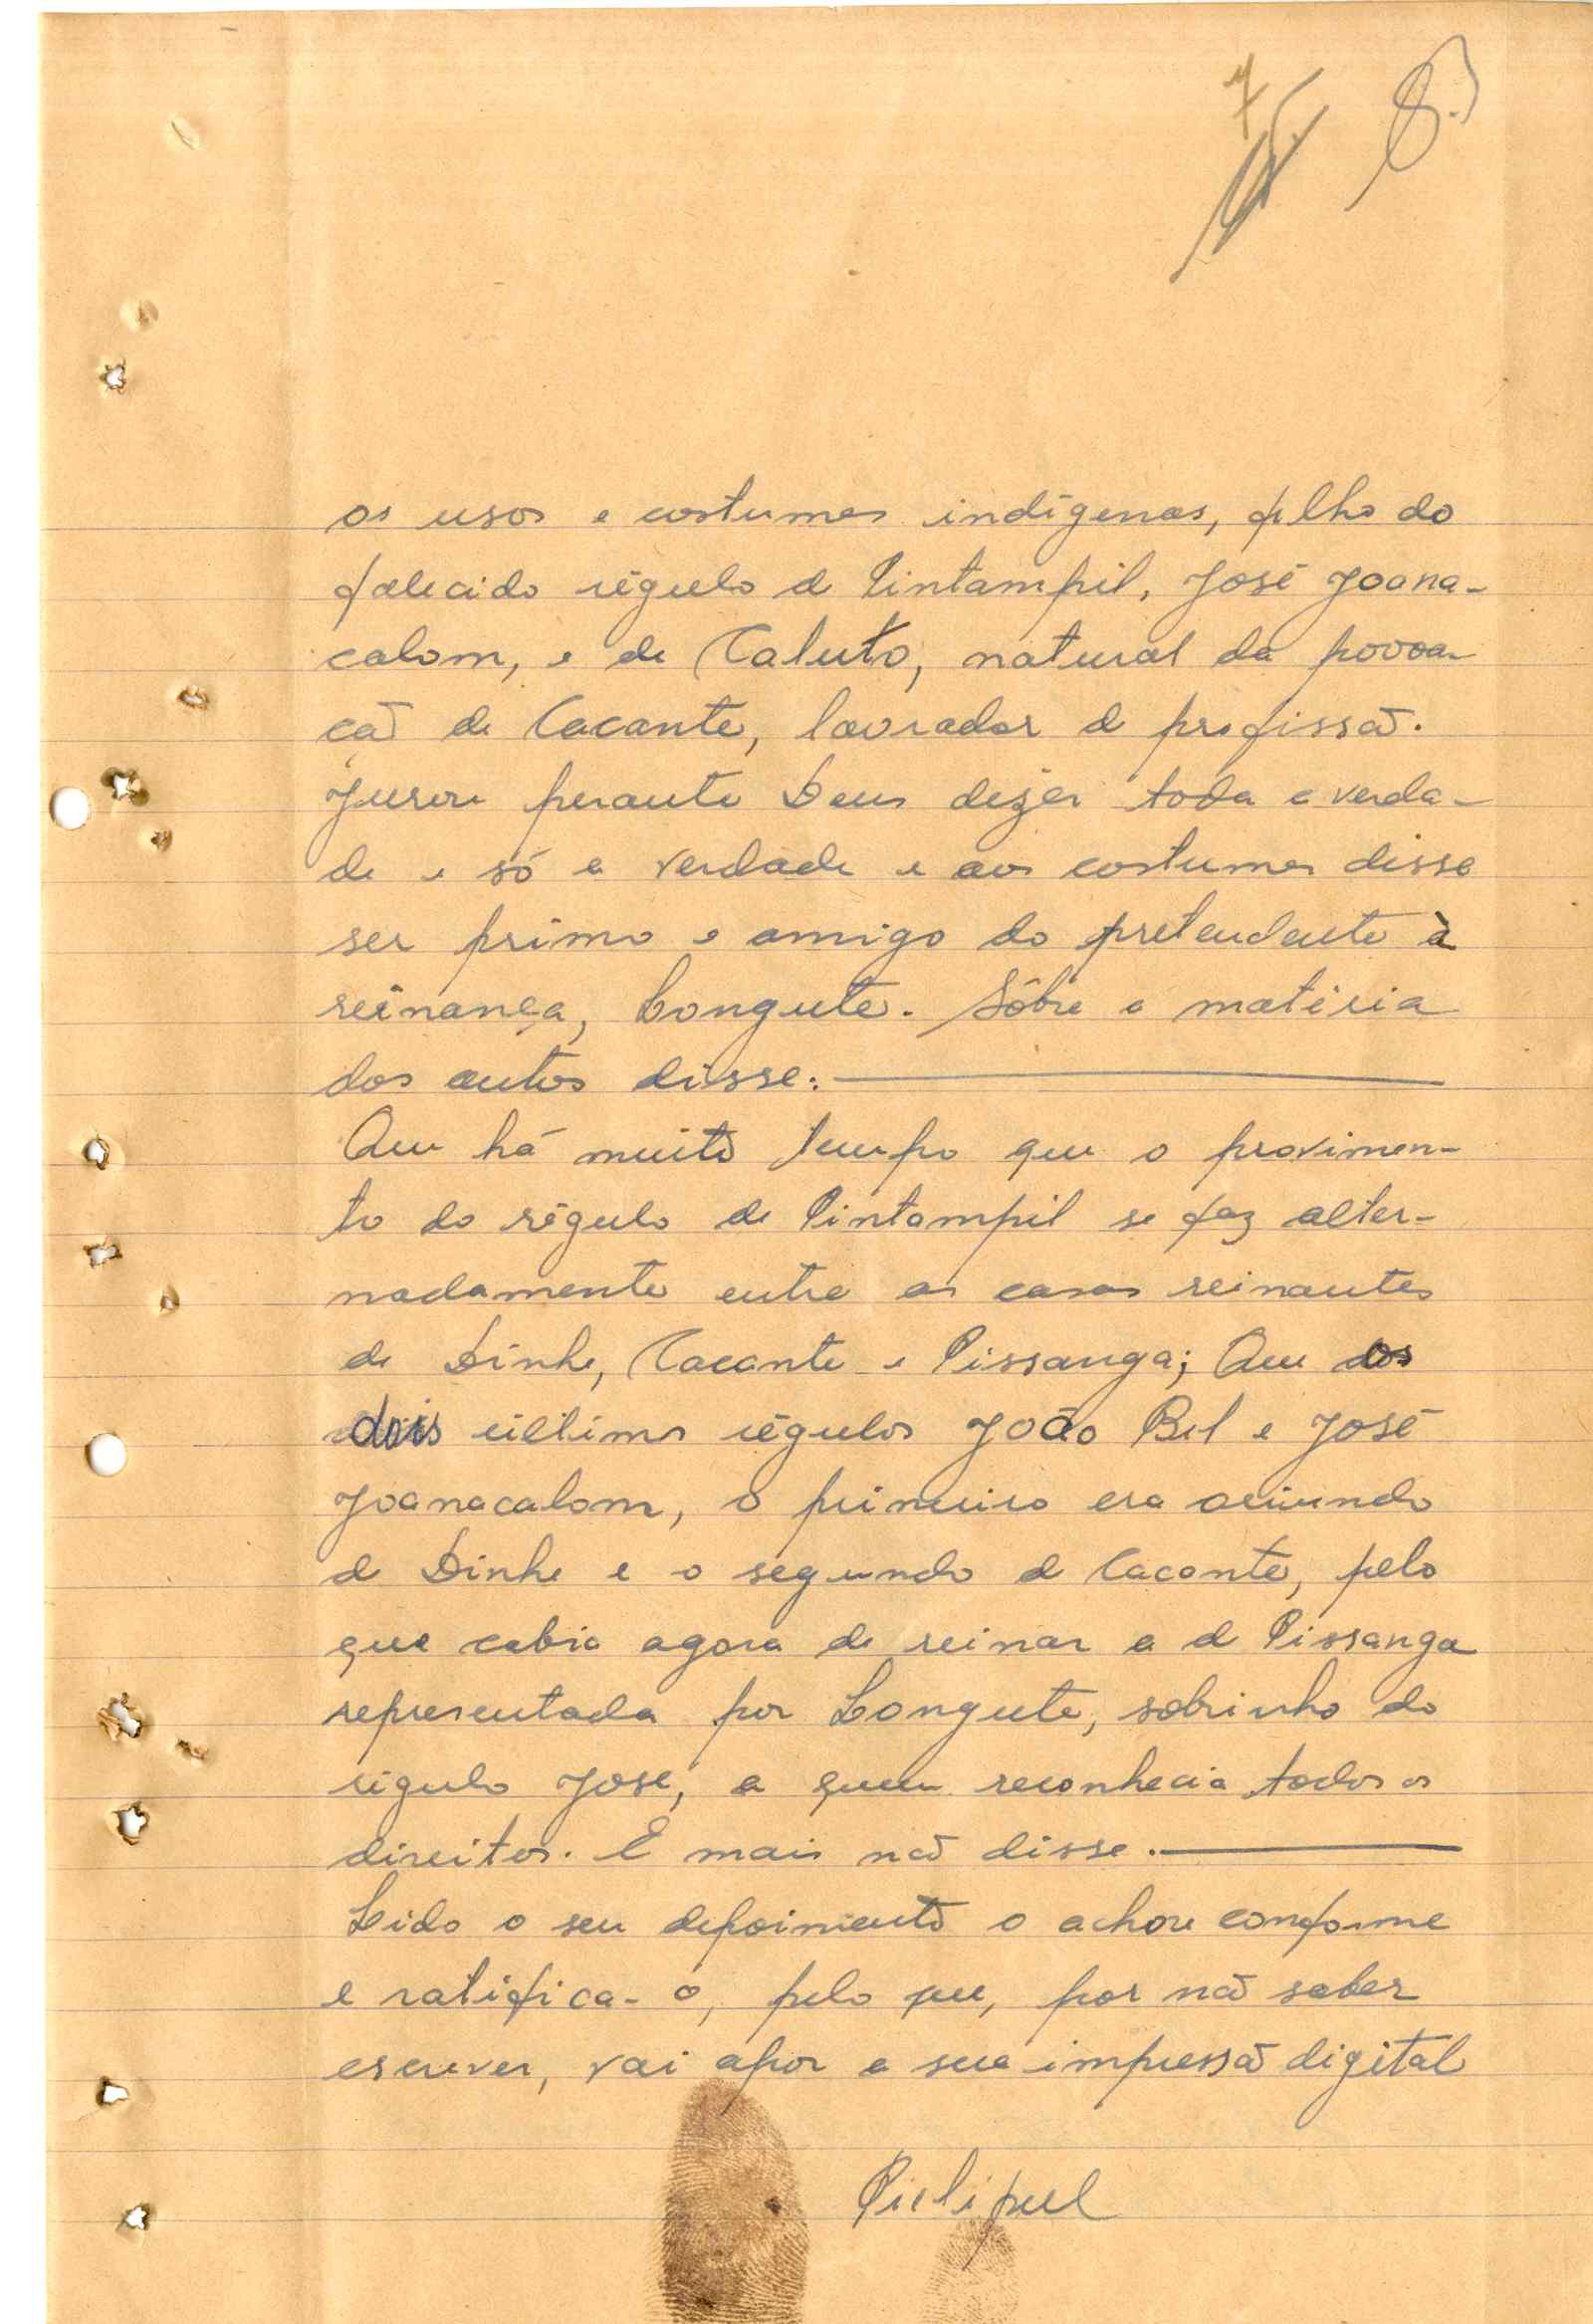 7
os usos e costumes indígenas, filho do
falecido régulo de Pintampil, José Joana-
calom, e de Caluto, natural da povoa-
ção de Cacante, lavrador de profissão.
Jurou perante Deus dizer toda a verda-
de e só a verdade e aos costumes disse
ser primo e amigo do pretendente à
reinança, Longute. Sôbre a matéria
dos autos disse:
Que há muito tempo que o provimen-
to do régulo de Pintampil se faz alter-
nadamente entre as casas reinantes
de Dinhe, Cacante e Pissanga; Que dos
dois últimos régulos João Bel e José
Joanacalom, o primeiro era oriundo
de Dinhe e o segundo de Cacante, pelo
que cabia agora de reinar a de Pissanga
representada por Longute, sobrinho do
régulo José, a quem reconhecia todos os
direitos. E mais não disse.
Lido o seu depoimento o achou conforme
e ratifica-o, pelo que, por não saber
escrever, vai apor a sua impressão digital